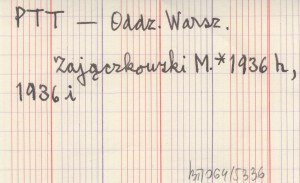 PTT — Oddz. Warsz.
Zajączkowski M. * 1936 h,
1936 i
064/5336